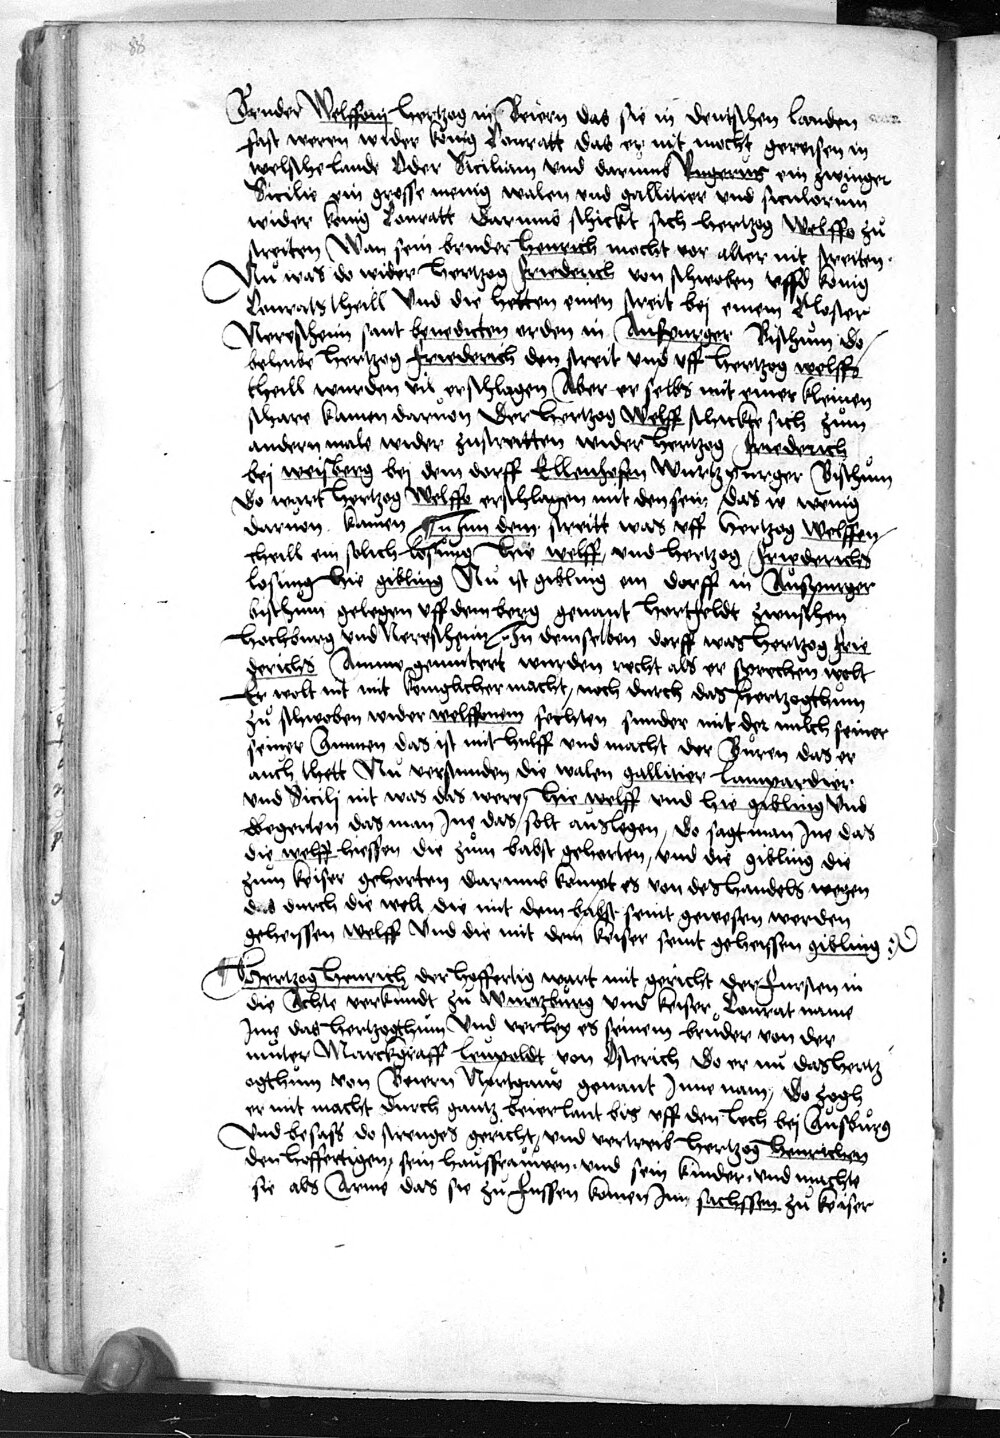 88
Bruder Welffoni hertzog in Beiern das sie in deutschen landen
fast weren wider konig Conratt das er nit mocht gereisen in
welsche lande Oder Sicilian und darumb Rugerus ein zwinger
Sicilie ein grosse menig walen und gallitier und siculorum
wider konig Conratt darumb schickt sich hertzog Welffo zu
streiten Wan sein bruder henrich mocht vor alter nit streiten
Nu was do wider hertzog friederich von schwoben uffs konig
Conrats theill Und die hetten einen streit bei einem Closter
Neresheim sant benedicten orden in Auspurger Bischum do
behube hertzog friederich den streit und uff hertzog welffs
theill wurden vil erschlagen Aber er selbs mit einer kleinen
schare kamen darvon Der hertzog Welff schickte sich zum
andern male wider zustreitten wider hertzog friederich
bei weisberg bei dem dorff Ellenhofen Wurtzburger Bischum
do wart hertzog Welffo erschlagen mit den sein das ir wenig
darvon kamen In dem streitt was uff hertzog Welffen
theill ein solich losung hie welff und hertzog friederichs
losung hie gibling Nu ist gibling ein dorff in Auspurger
bischum gelegen uff dem berg genant hertfeldt zwuschen
Hochburg und Neresheim In demselben dorff was hertzog frie
derichs Amme gemutert wurden recht als er sprechen wolt
Er wolt nit mit koniglicher macht noch durch das hertzogthum
zu schwoben wider welffonem fechten sunder mit der milch seiner
seiner Ammen das ist mit hulff und macht der Buren das er
auch thett Nu verstunden die walen gallitier Lampardier
und Sicilj nit was das were hie welff und hie gibling Und
begerten das man Ine das solt auslegen do sagt man Ine das
die welff hiessen die zum babst gehorten und die gibling die
zum keiser gehorten darumb kompt es von des handels wegen
das durch die welt die mit dem babst seint gewesen werden
geheissen welff Und die mit dem keiser seint geheissen gibling
Hertzog Henrich der hoffertig wart mit gericht der Fursten in
die Achte verkundt zu Wurtzburg und keiser Conrat name
Ime das hertzogthum Und verley es seinem bruder von der
muter Marckgraff Leupoldt von Osterich do er nu das hertz
ogthum von Beiern Nortgauw genant Inne nam do zogh
er mit macht durch gantz beierlant bis uff den lech bej Ausburg
Und besass do strenges gericht und vertreib hertzog henrichen
den hoffertigen sein haussfrauwen und sein kinder und machte
sie als Arme das sie zu Fussen komen Inn sachssen zu keiser